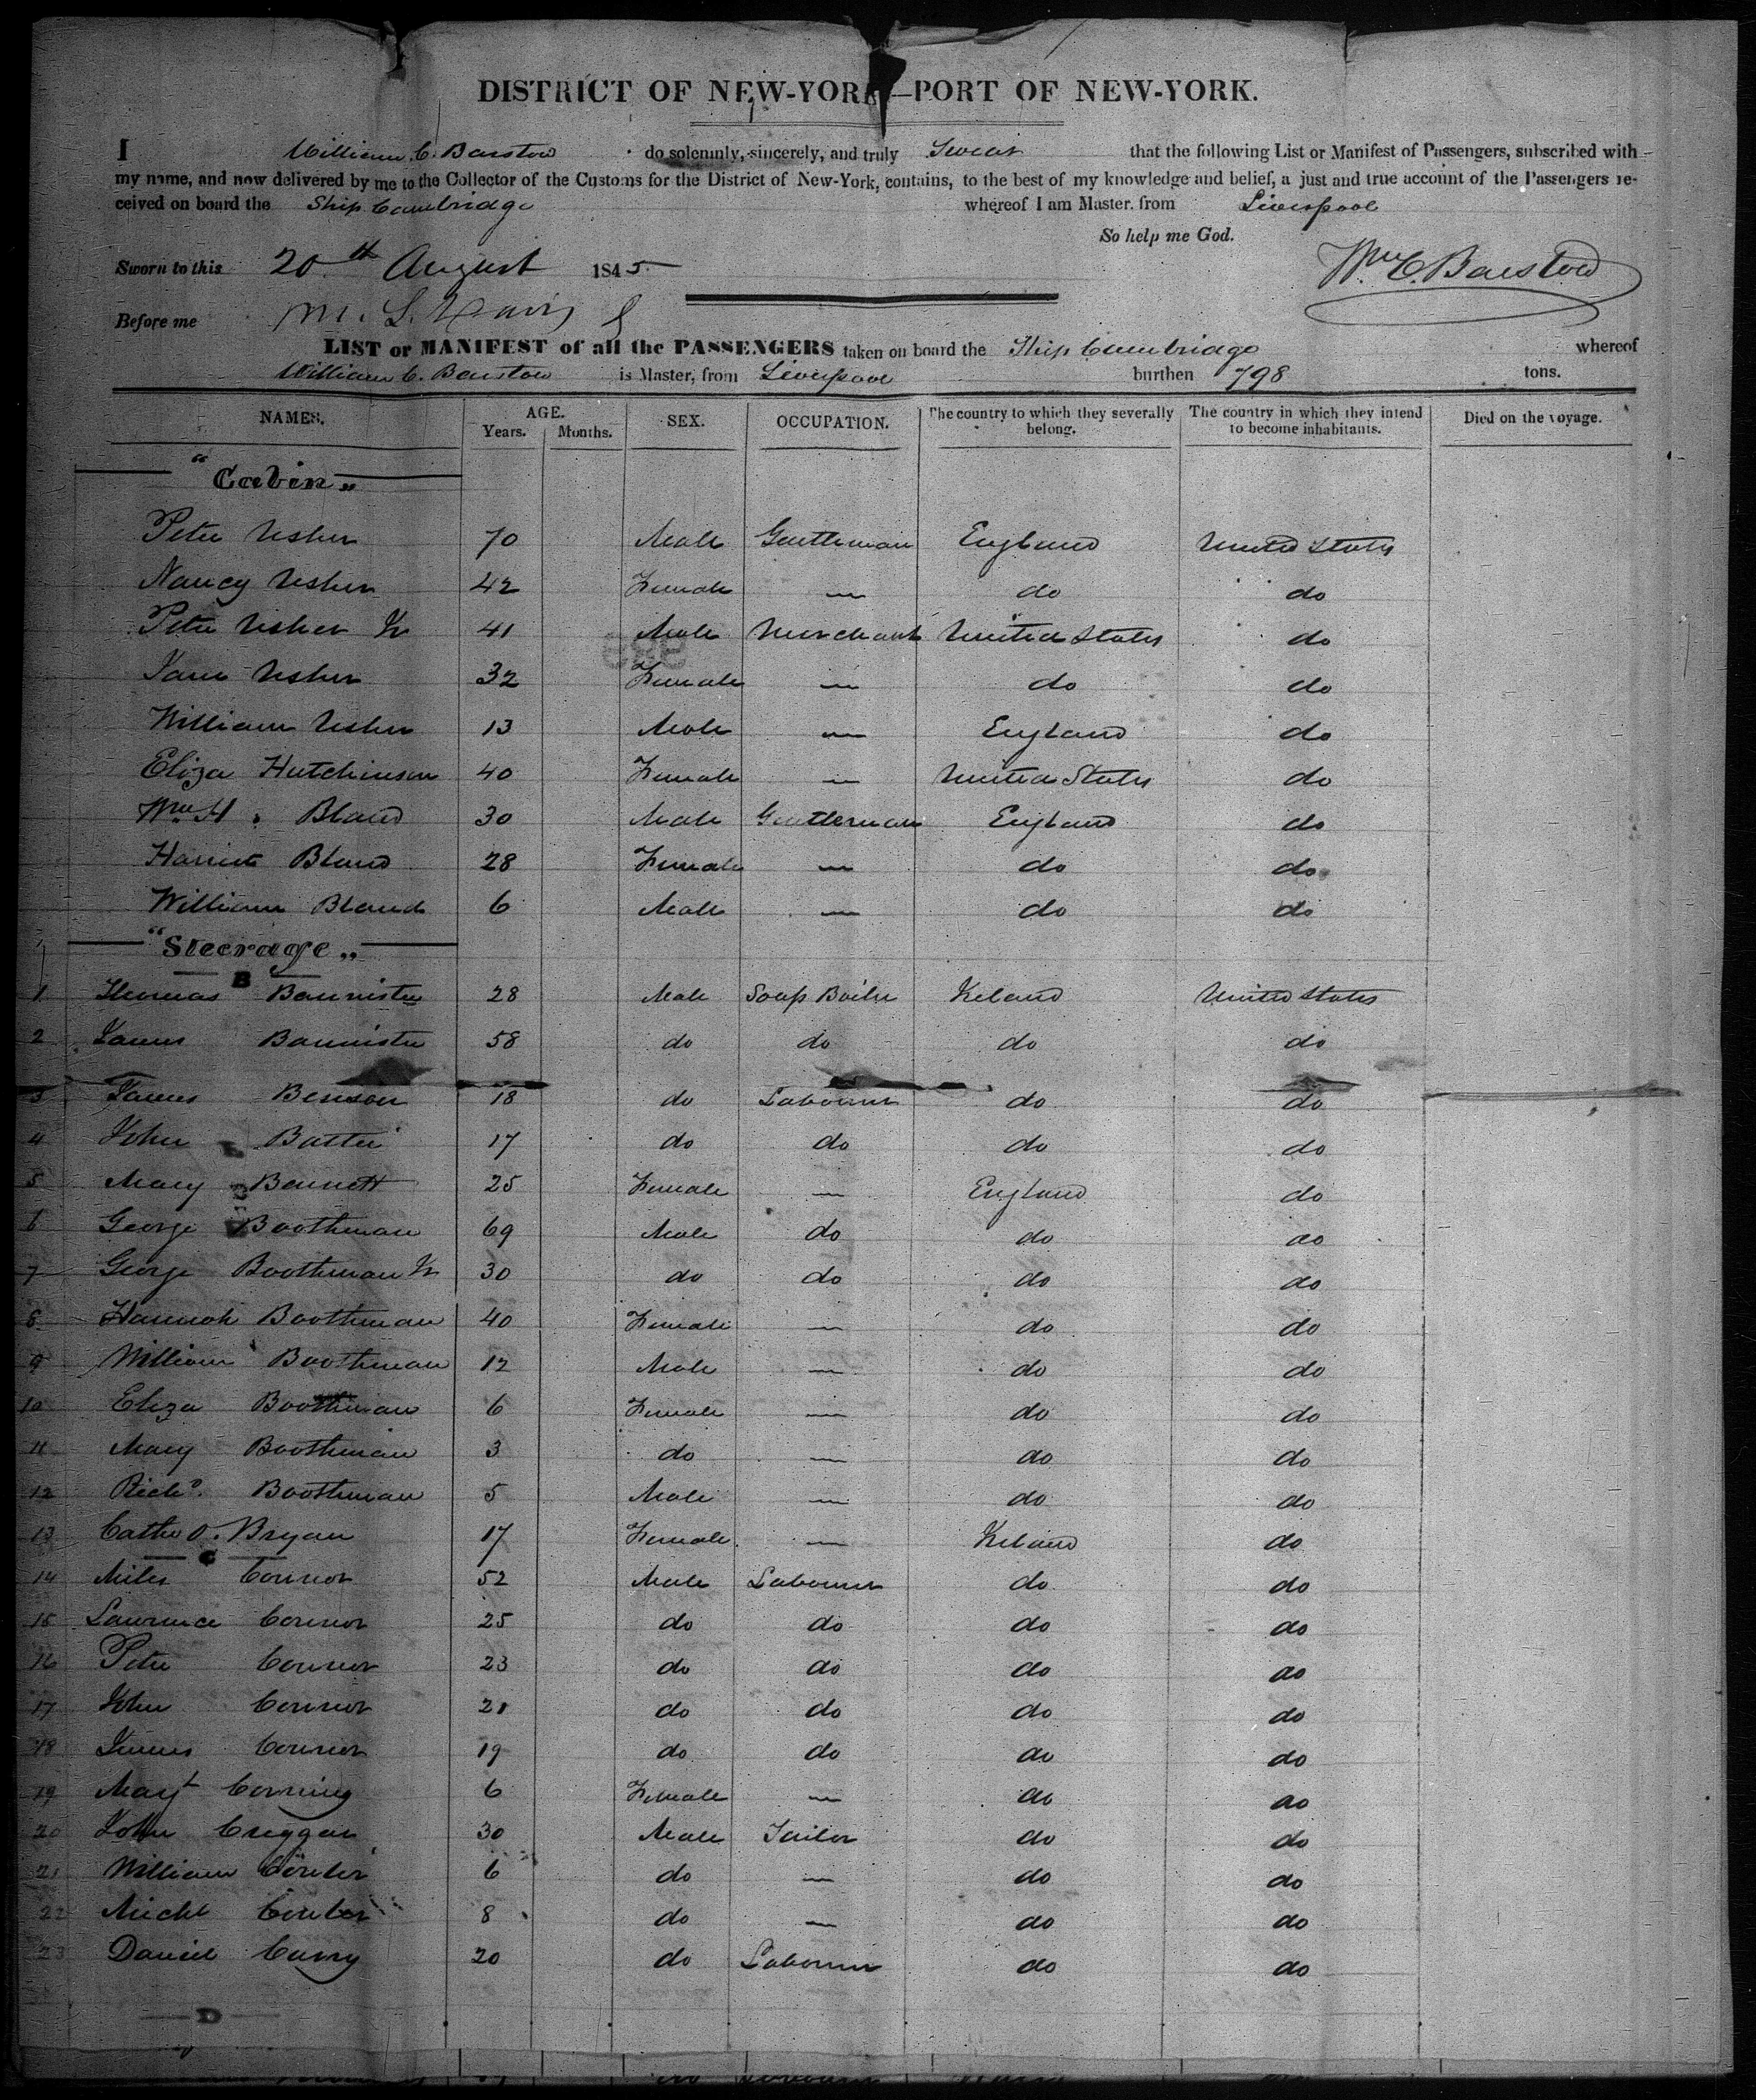 DISTRICT OF NEW-YORK—PORT OF NEW-YORK.
I William C. Barstow do solemnly, sincerely, and truly Swear that the following List or Manifest of Passengers, subscribed with
my name, and now delivered by me to the Collector of the Customs for the District of New-York, contains, to the best of my knowledge and belief, a just and true account of the Passengers re-
ceived on board the Ship Cambridge whereof I am Master. from Liverpool
So help me God.
Sworn to this 20th August 1845 Wm. C. Barstow
Before me M. L. Davis
LIST or MANIFEST of all the PASSENGERS taken on board the Ship Cambridge whereof
William C. Barstow is Master, from Liverpool burthen 798 tons.
NAMES. AGE. Years. Months. SEX. OCCUPATION. The country to which they severally belong. The country in which they intend to become inhabitants. Died on the voyage.
"Cabin"
Peter Usher 70 Male Gentleman England United States
Nancy Usher 42 Female — do do
Peter Usher Jr 41 Male Merchant United States do
Jane Usher 32 Female — do do
William Usher 13 Male — England do
Eliza Hutchinson 40 Female — United States do
Wm. H. Bland 30 Male Gentleman England do
Harriet Bland 28 Female — do do
William Bland 6 Male — do do
"Steerage"
B
1 Thomas Bannister 28 Male Soap Boiler Ireland United States
2 James Bannister 58 do do do do
3 James Benson 18 do Labourer do do
4 John 17 do do do do
5 Mary Bennett 25 Female — England do
6 George Boothman 69 Male do do do
7 George Boothman Jr 30 do do do do
8 Hannah Boothman 40 Female — do do
9 William Boothman 12 Male — do do
10 Eliza Boothman 6 Female — do do
11 Mary Boothman 3 do — do do
12 Richd. Boothman 5 Male — do do
13 Cathe O. Bryan 17 Female — Ireland do
C
14 Miles Connor 52 Male Labourer do do
15 Lawrence Connor 25 do do do do
16 Peter Connor 23 do do do do
17 John Connor 21 do do do do
18 James Connor 19 do do do do
19 Margt Corning 6 Female — do do
20 John Creggan 30 Male Tailor do do
21 William 6 do — do do
22 Michl 8 do — do do
23 Daniel 20 do Labourer do do
D